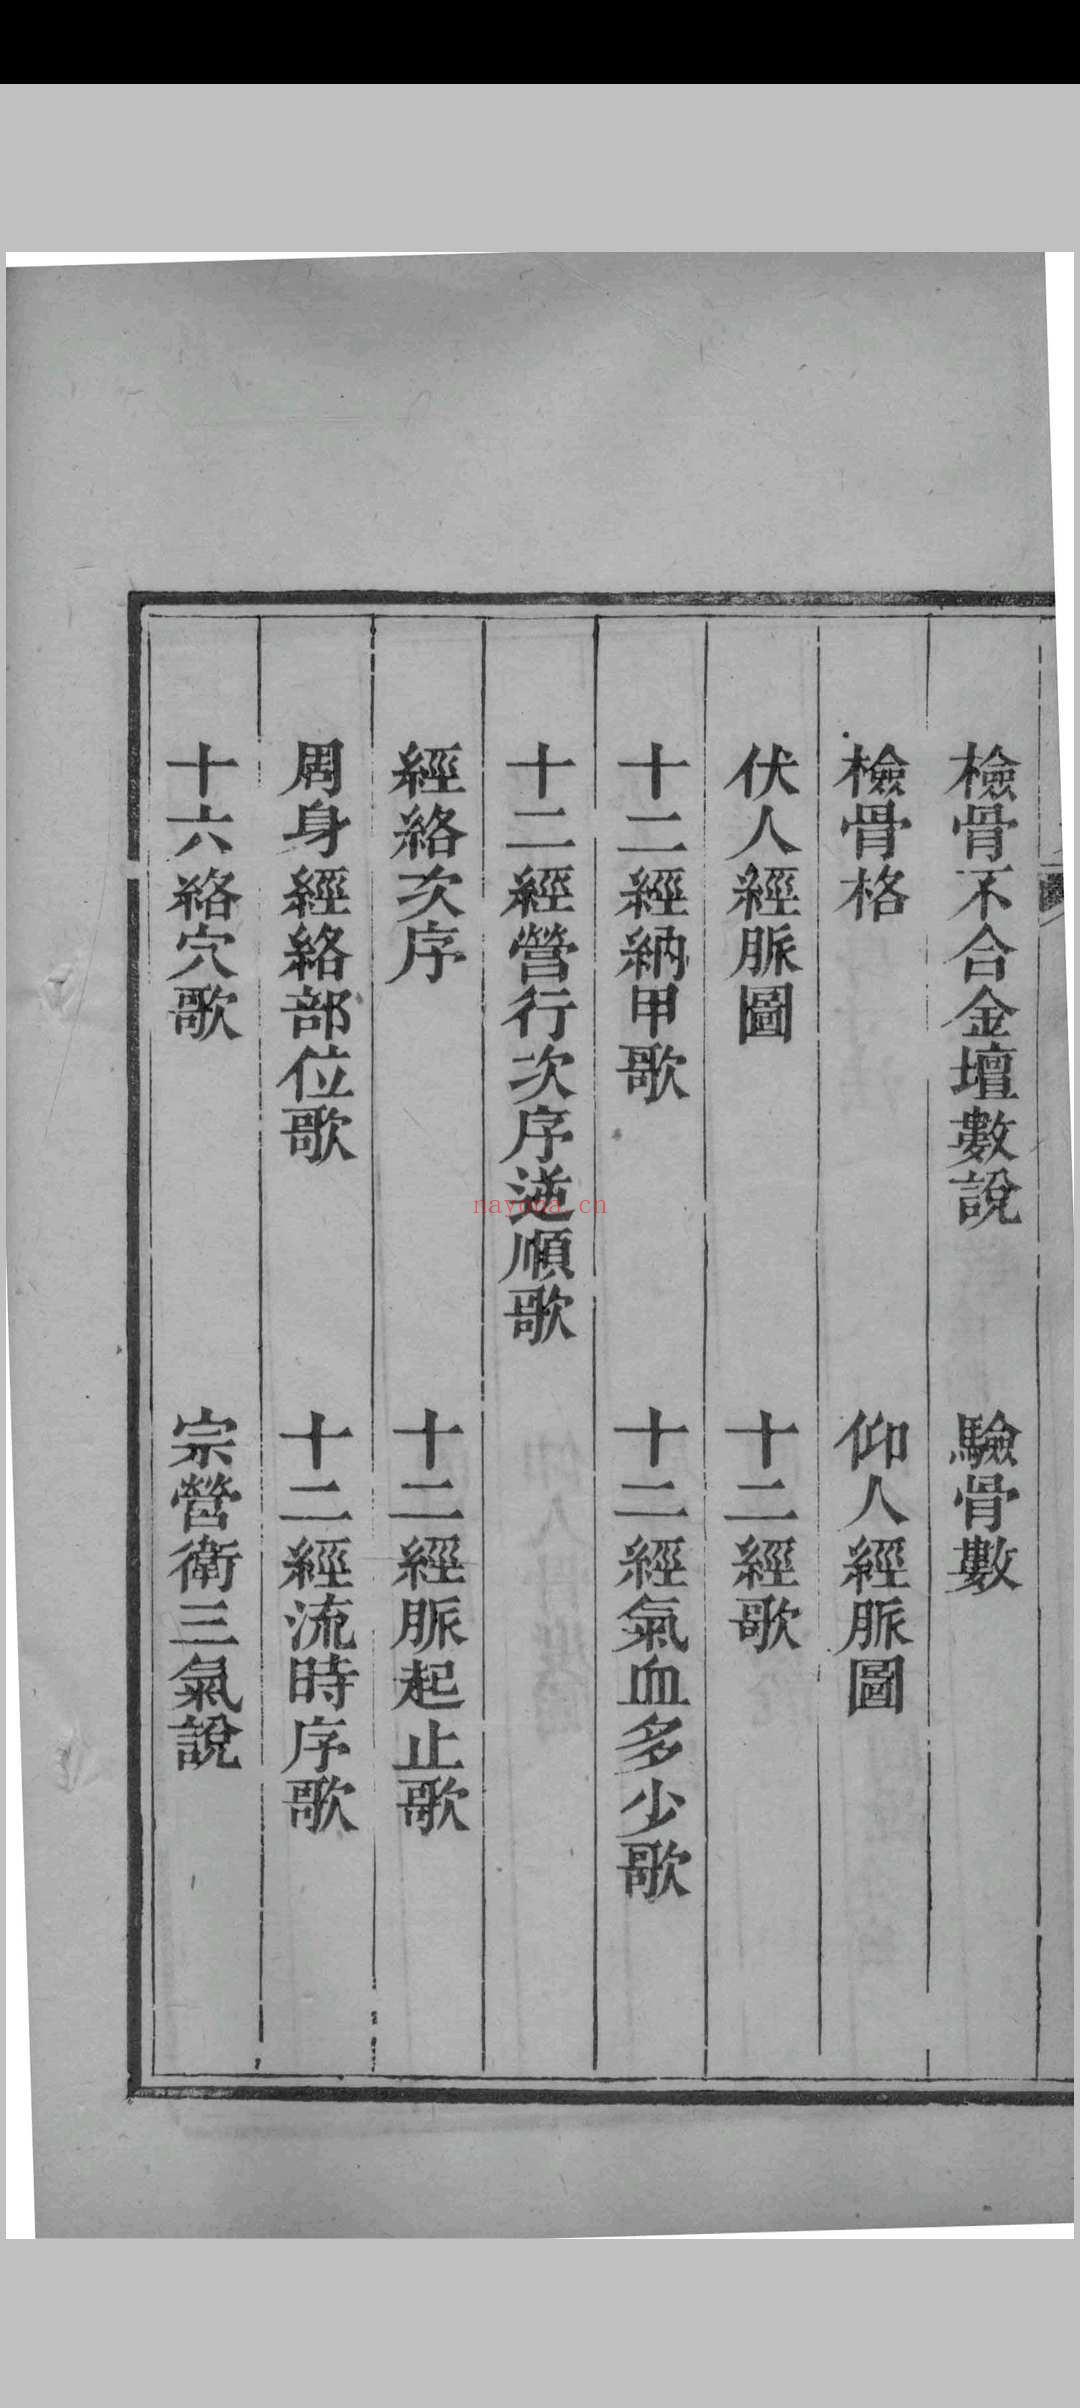 檢骨不合金壇數說　驗骨數
檢骨格　仰人經脈圖
伏人經脈圖　十二經歌
十二經納甲歌　十二經氣血多少歌
十二經營行次序逆順歌
經絡次序　十二經脈起止歌
周身經絡部位歌　十二經流時序歌
十六絡穴歌　宗營衛三氣說
nayona.cn